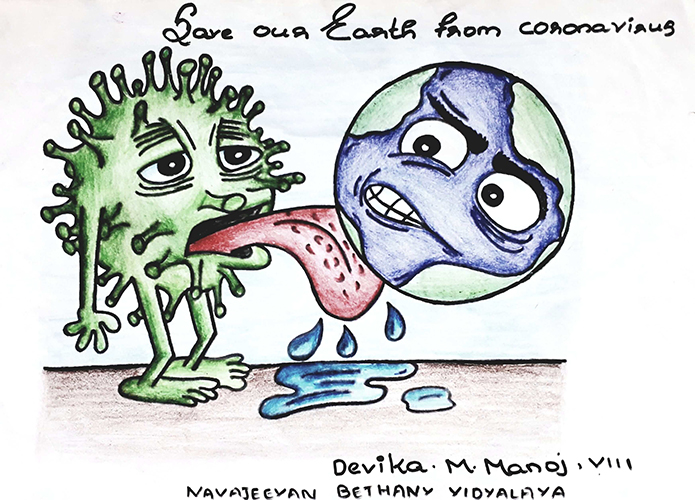 Save our Earth from coronavirus
Devika. M. Manoj, VIII
NAVAJEEVAN BETHANY VIDYALAYA